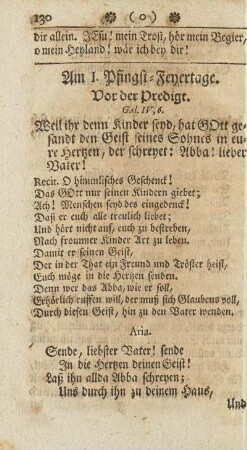 130 ( o )
dir allein. JEsu! mein Trost, hör mein Begier,
o mein Heyland! wär ich bey dir!
Am I. Pfingst-Feyertage.
Vor der Predigt.
Gal. IV, 6.
Weil ihr denn Kinder seyd, hat GOtt ge-
sandt den Geist seines Sohnes in eu-
re Hertzen, der schreyet: Abba! lieber
Vater!
Recit. O himmlisches Geschenck!
Das GOtt nur seinen Kindern giebet;
Ach! Menschen seyd des eingedenck!
Daß er euch alle treulich liebet;
Und hört nicht auf, euch zu bestreben,
Nach frommer Kinder Art zu leben.
Damit er seinen Geist,
Der in der That ein Freund und Tröster heist,
Euch möge in die Hertzen senden.
Denn wer das Abba, wie er soll,
Erhörlich ruffen will, der muß sich Glaubens voll,
Durch diesen Geist, hin zu den Vater wenden.
Aria.
Sende, liebster Vater! sende
In die Hertzen deinen Geist!
Laß ihn allda Abba schreyen;
Uns durch ihn zu deinem Haus,
Und